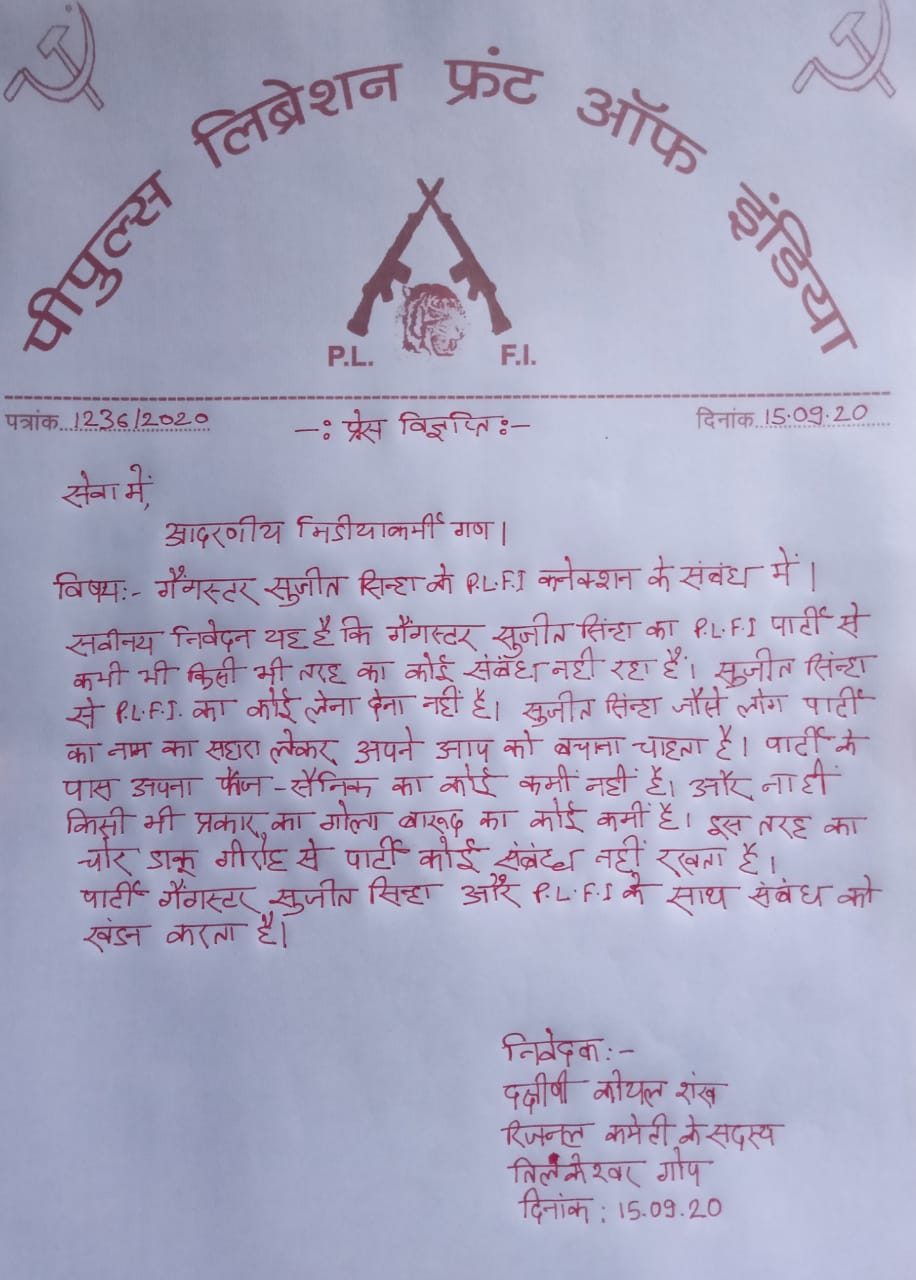 पीपुल्स लिब्रेशन फ्रंट ऑफ इंडिया
P.L. F.I.
पत्रांक 1236/2020 -: प्रेस विज्ञप्ति :- दिनांक 15.09.20
सेवा में,
आदरणीय मिडीयाकर्मी गण।
विषय:- गैंगस्टर सुजीत सिन्हा के P.L.F.I कनेक्शन के संबंध में।
सवीनय निवेदन यह है कि गैंगस्टर सुजीत सिंन्हा का P.L.F.I पार्टी से
कभी भी किसी भी तरह का कोई संबंध नही रहा है। सुजीत सिंन्हा
से P.L.F.I. का कोई लेना देना नहीं है। सुजीत सिंन्हा जैसे लोग पार्टी
का नाम का सहारा लेकर अपने आप को बचाना चाहता है। पार्टी के
पास अपना फौज - सैनिक का कोई कमीं नहीं है। और ना हीं
किसी भी प्रकार का गोला बारूद का कोई कमीं है। इस तरह का
चोर डाकू गीरोह से पार्टी कोई संबंध नहीं रखता है।
पार्टी गैंगस्टर सुजीत सिन्हा और P.L.F.I के साथ संबंध को
खंडन करता है।
निवेदक:-
दक्षीणी कोयल शंख
रिजनल कमेटी के सदस्य
तिलकेश्वर गोप
दिनांक : 15.09.20